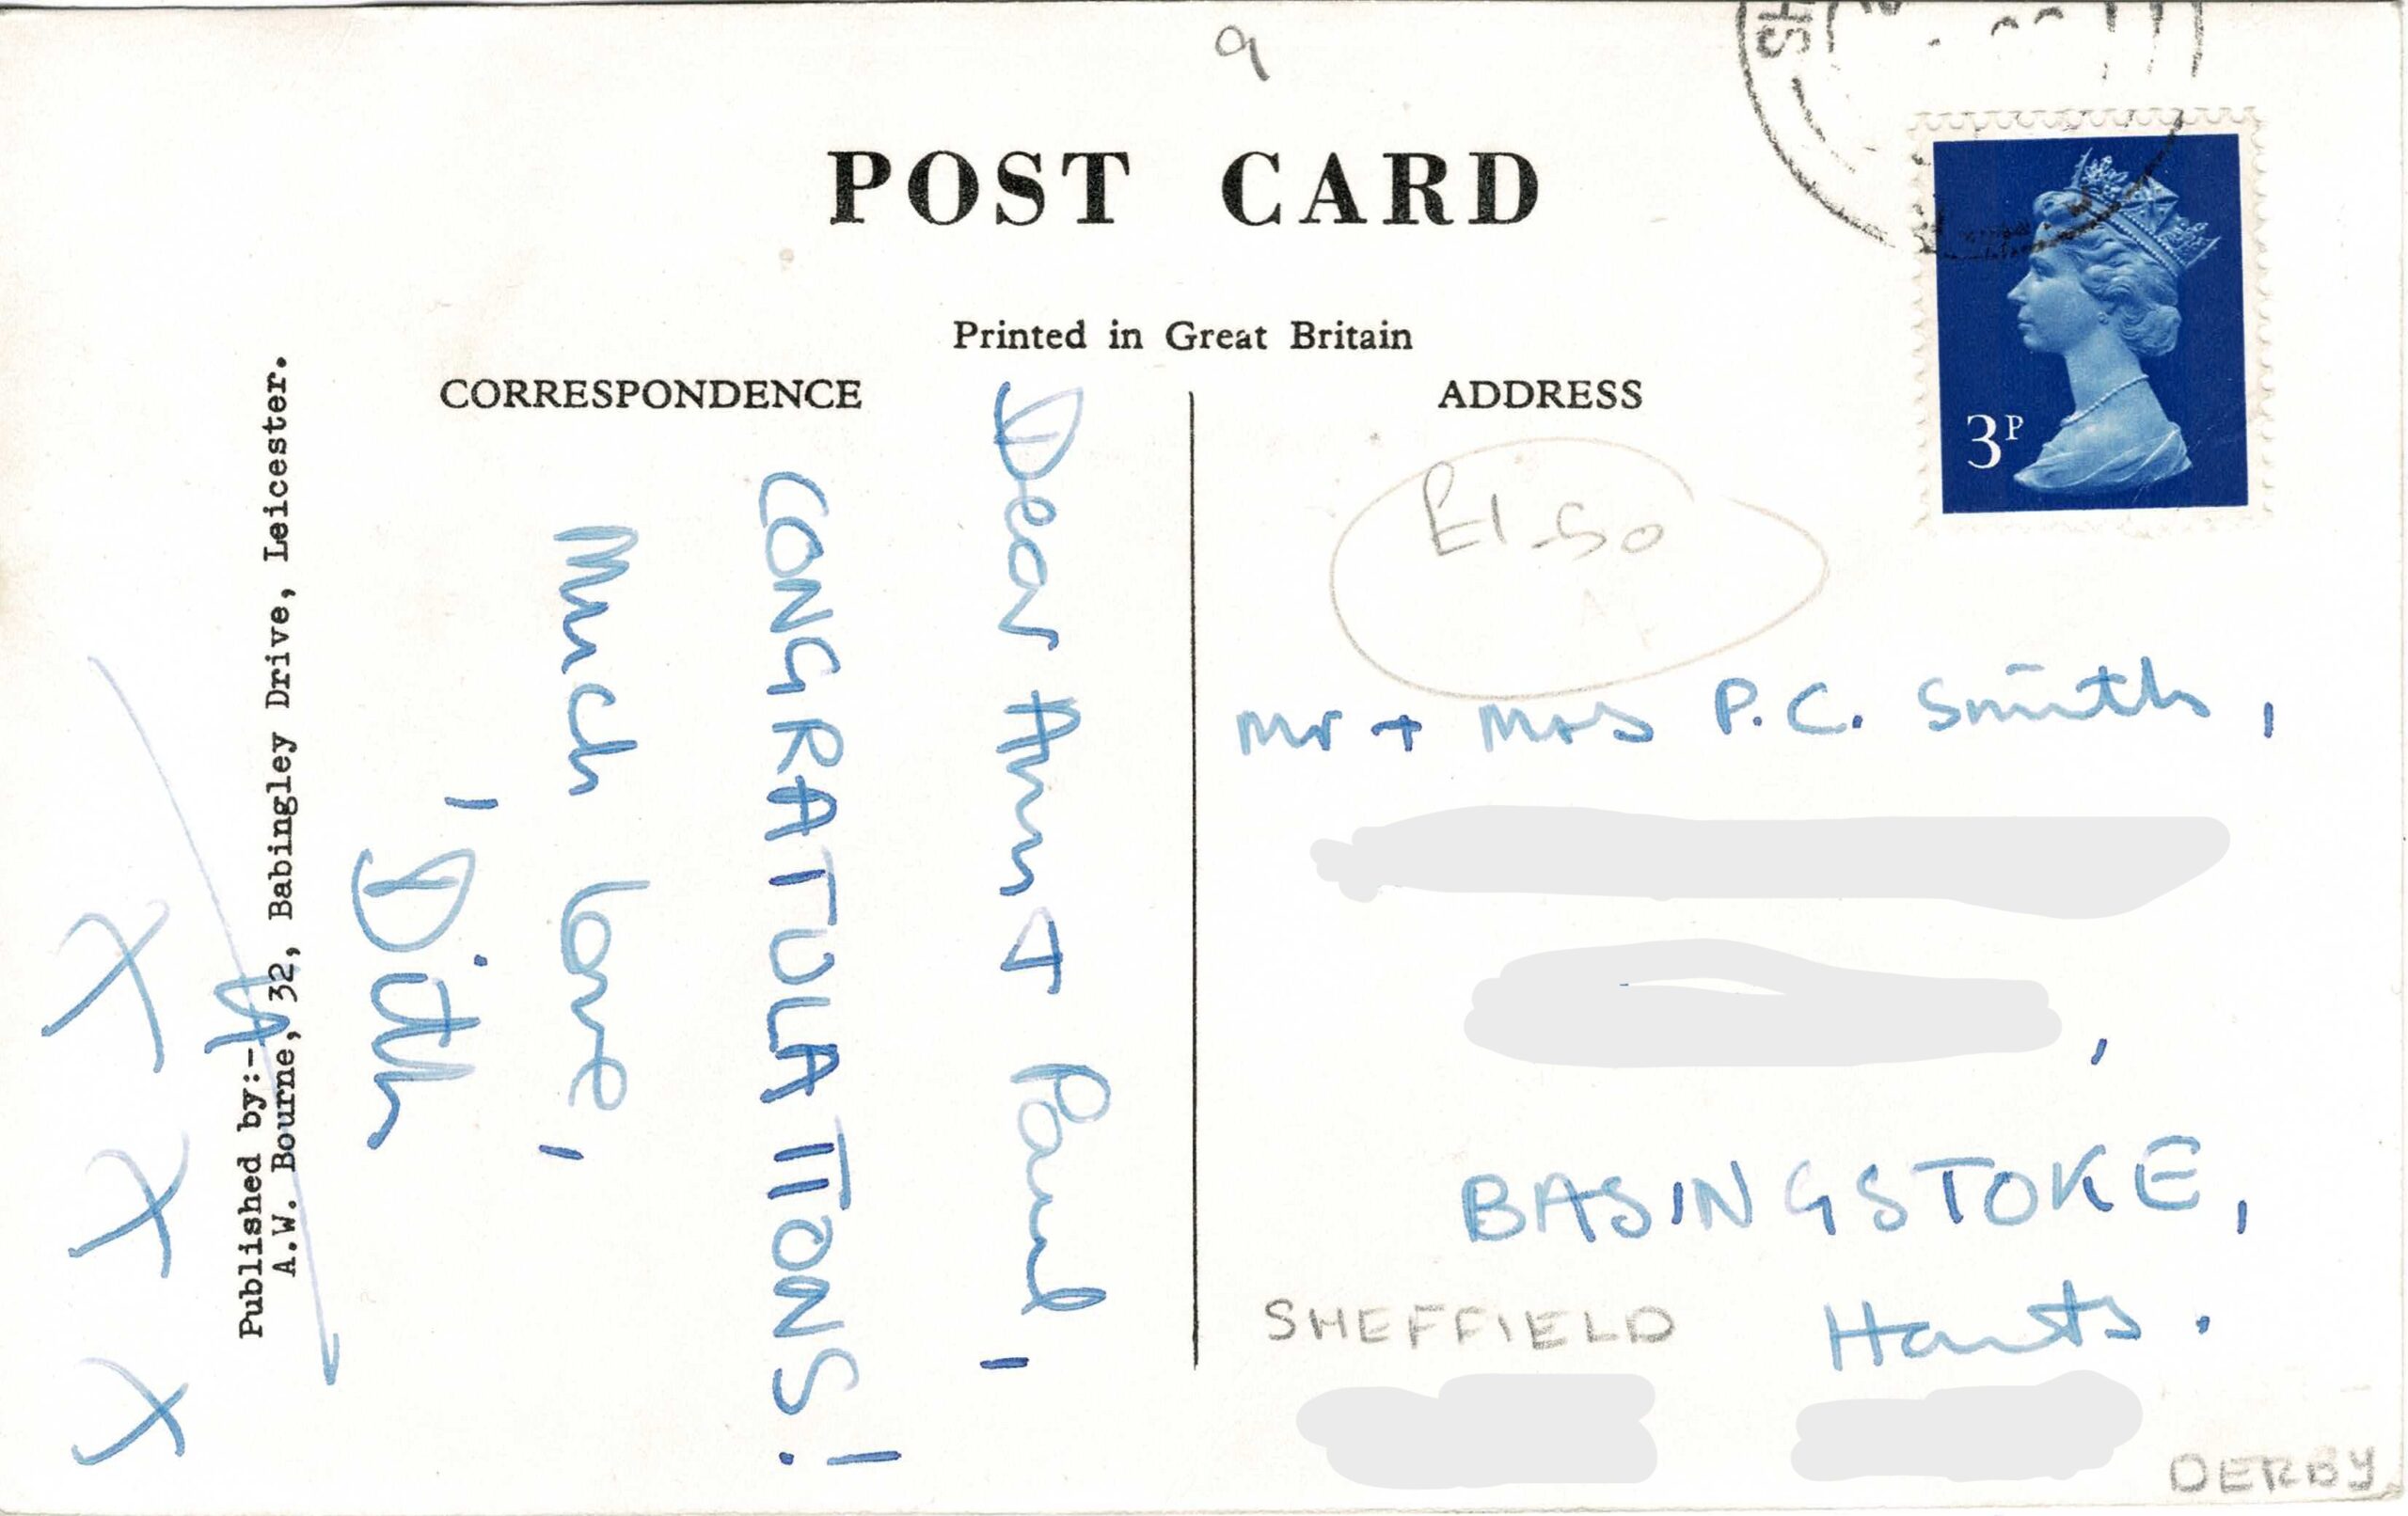 9
SH
POST CARD
Printed in Great Britain
CORRESPONDENCE
ADDRESS
3P
£1-50
Dear Ann & Paul,
CONGRATULATIONS!
Much love,
Dith
X X X
Published by:-
A.W. Bourne, 32, Babingley Drive, Leicester.
Mr + Mrs P.C. Smith,
,
BASINGSTOKE,
Hants.
SHEFFIELD
DERBY